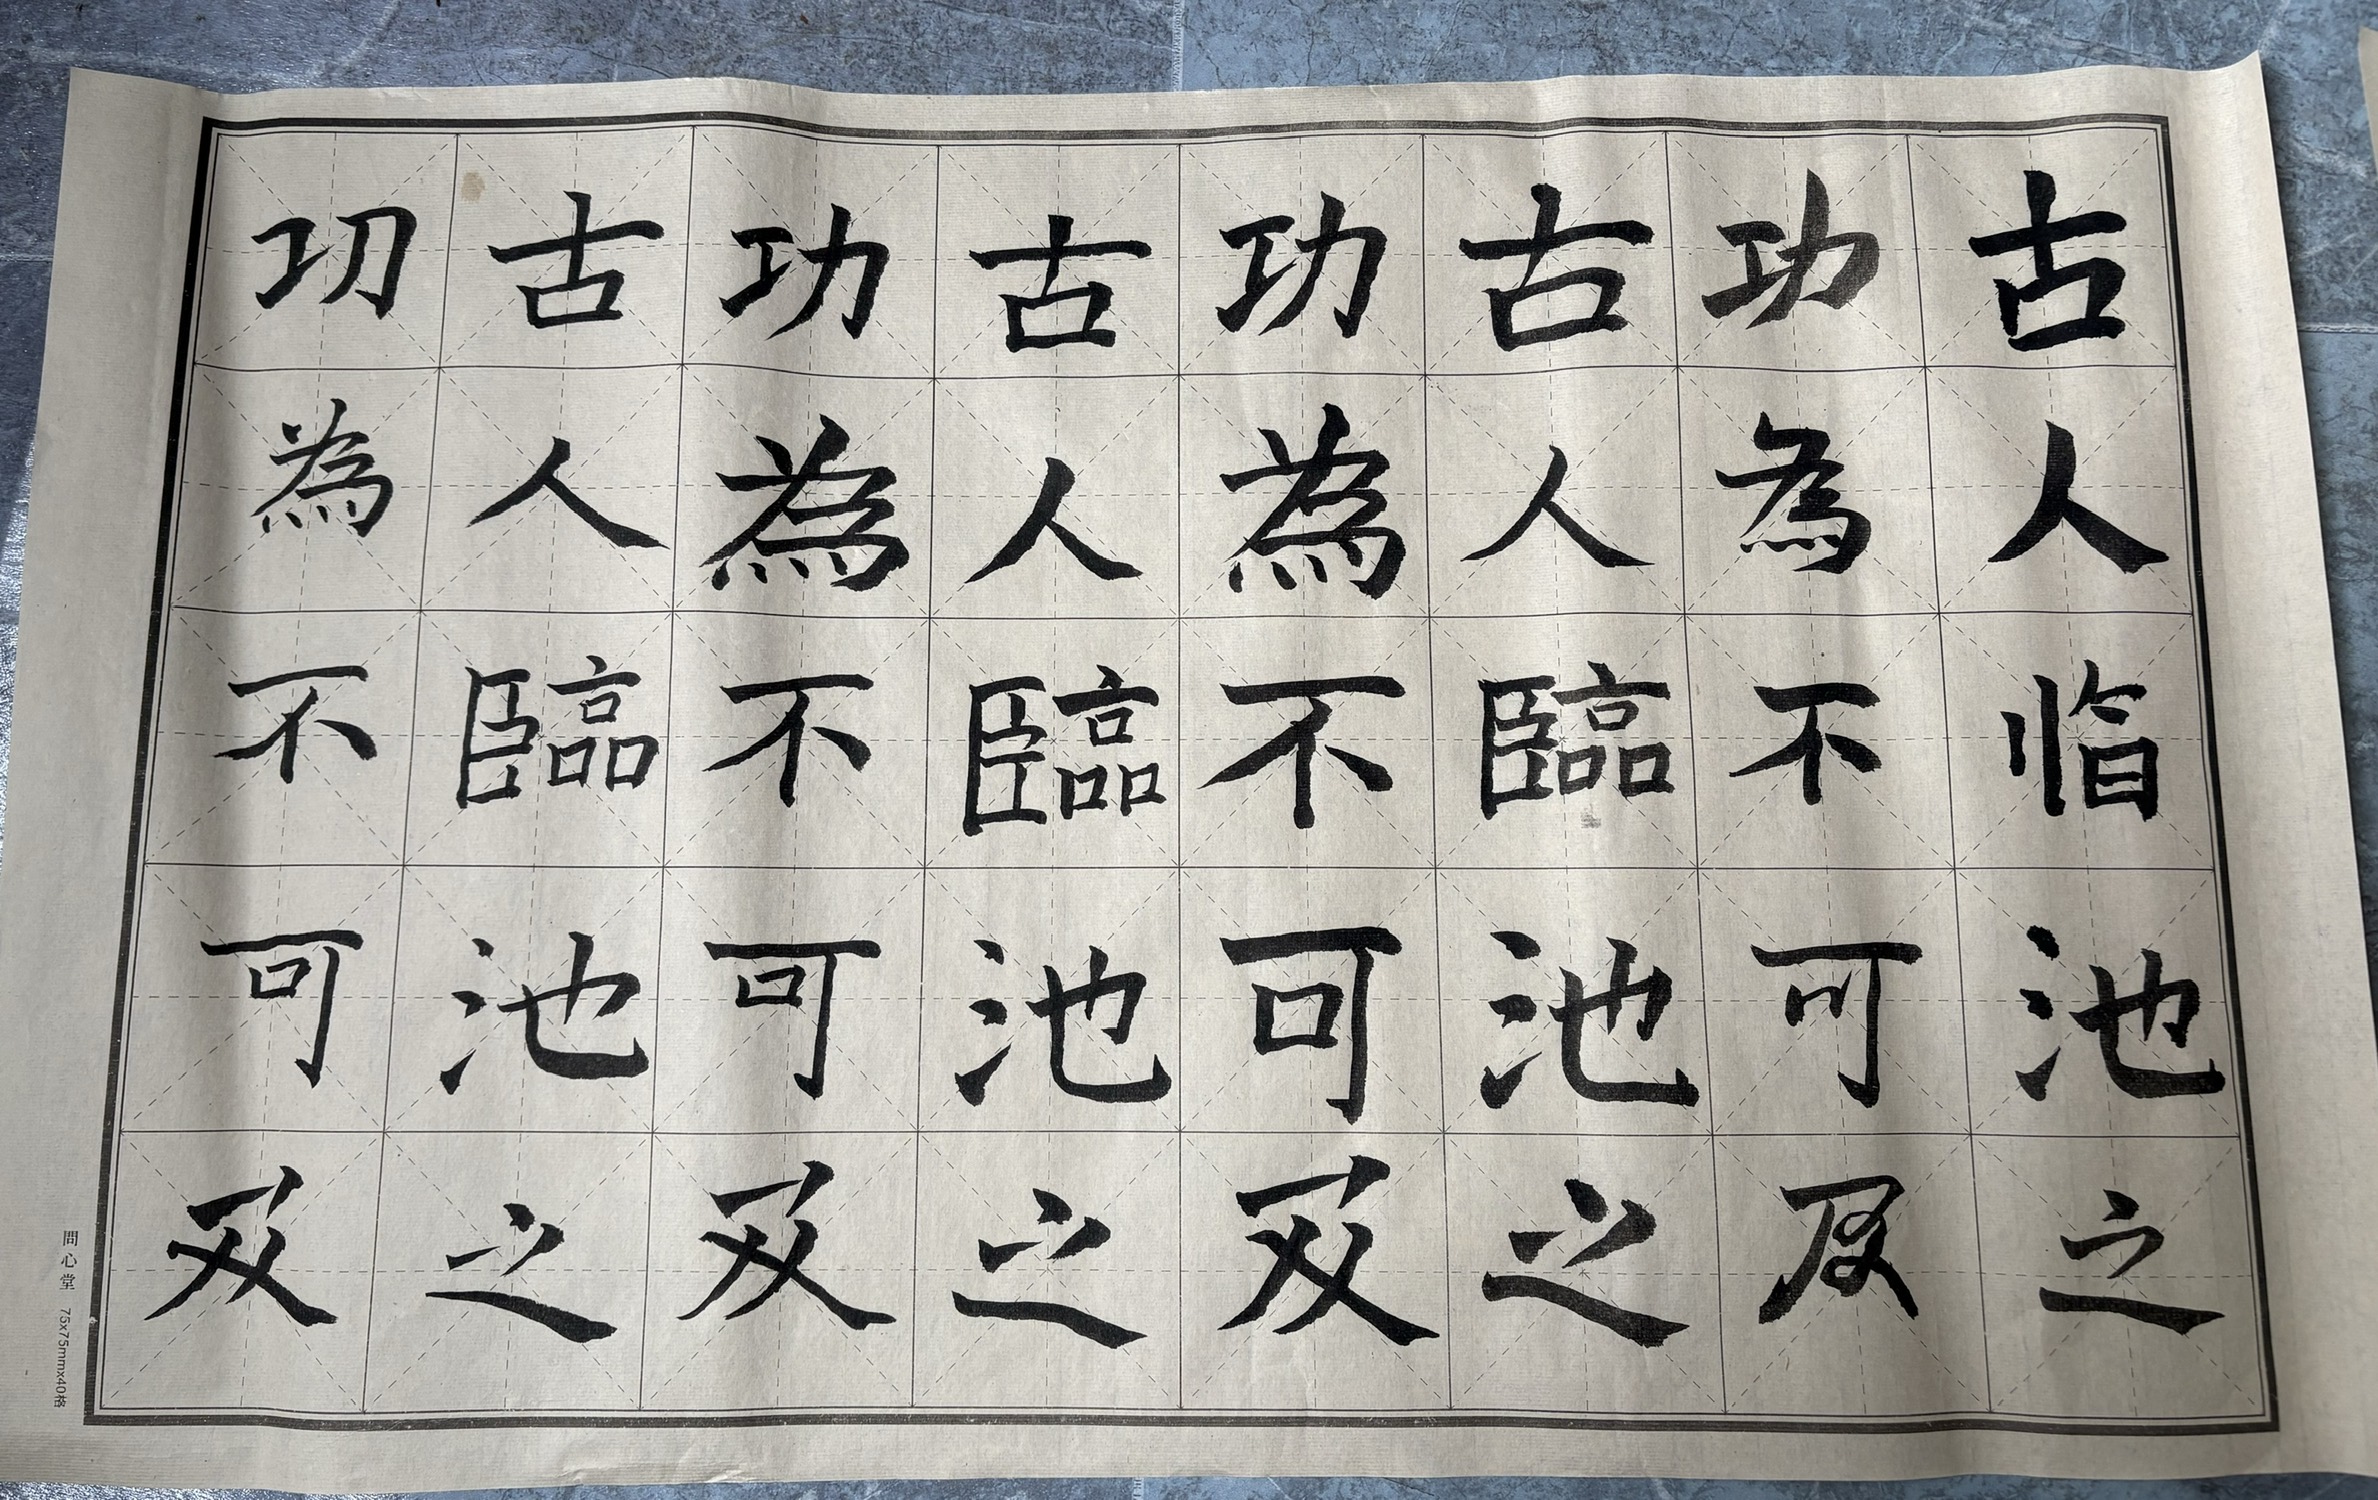 古人临池之
功為不可及
古人臨池之
功為不可及
古人臨池之
功為不可及
古人臨池之
功為不可及
問心堂 75x75mmx40格